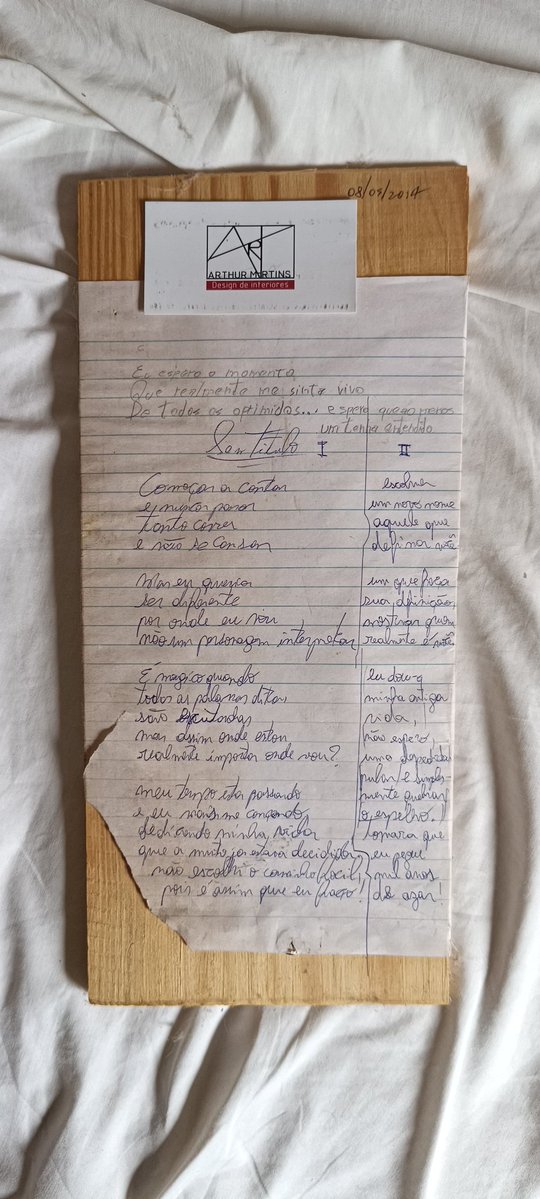 08/09/2014
ART
ARTHUR MARTINS
Design de interiores
Eu espero o momento
Que realmente me sinta vivo
De todos os optimidos... espero que ao menos
um tenha entendido
Sem Título I
Começar a contar
e nunca parar
tanto correr
e não se cansar
Mas eu queria
ser diferente
por onde eu vou,
não um personagem interpretar
É magico quando
todas as palavras ditas,
são escutadas,
mas assim onde estou
realmente importa onde vou?
meu tempo está passando
e eu mais me cansando,
dedicando minha vida
que a muito ja estava decidida,
não escolhi o caminho facil,
pois é assim que eu faço!
II
escolher
um novo nome
aquele que
definir você
um que faça
sua definição,
mostrar quem
realmente é você
eu dou-a
minha antiga
vida,
não espero,
uma despedida
pular e simples-
mente quebrar
o espelho!
tomara que
eu pegue
mil anos
de azar!